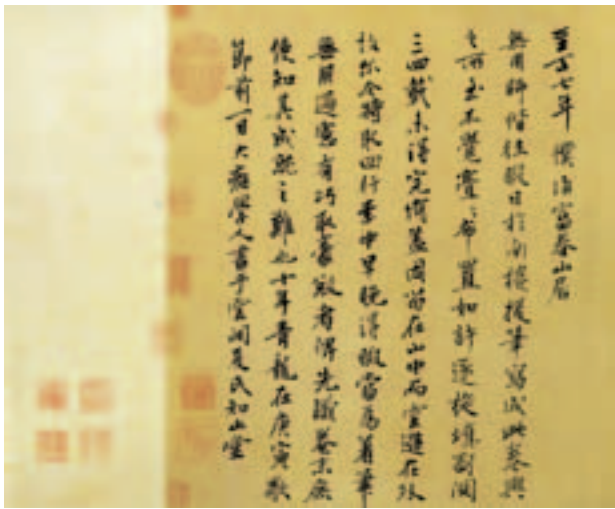 至正七年僕歸富春山居
無用師偕往暇日於南樓援筆寫成此卷興
之所至不覺亹亹布置如許逐旋填劄閱
三四載未得完備蓋因留在山中而雲遊在外
故爾今特取回行李中早晚得暇當為着筆
無用過慮有巧取豪敚者俾先識卷末庶
使知其成就之難也十年青龍在庚寅歜
節前一日大癡學人書于雲間夏氏知止堂